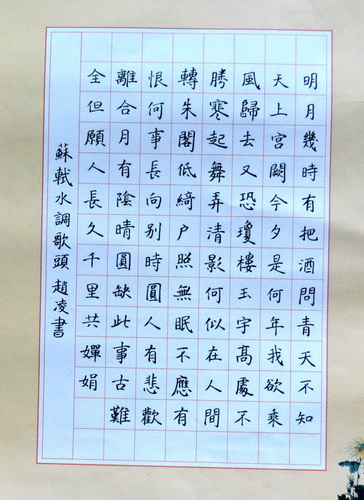 明月幾時有把酒問青天不知
天上宮闕今夕是何年我欲乘
風歸去又恐瓊樓玉宇髙處不
勝寒起舞弄清影何似在人間
轉朱閣低綺户照無眠不應有
恨何事長向别時圓人有悲歡
離合月有陰晴圓缺此事古難
全但願人長久千里共嬋娟
蘇軾水調歌頭趙凌書